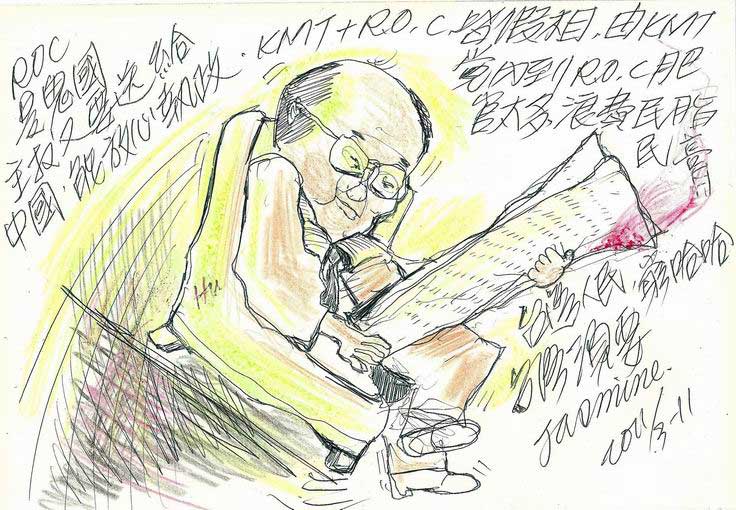 ROC
是鬼國
主权又要送給
中國.能放心執政.
KMT+R.O.C.皆假相.由KMT
党內到R.O.C肥
官太多浪費民脂
民膏
Hu
台湾人民.窮哈哈
台湾須要
Jasmine.
2011/3-11